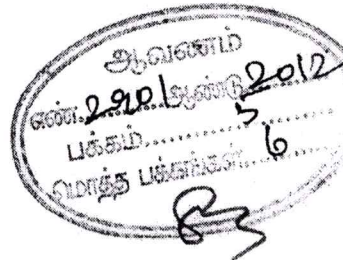 ஆவணம்
எண். 2901 ஆண்டு 2012
பக்கம்.............. 5
மொத்த பக்கங்கள்.. 6